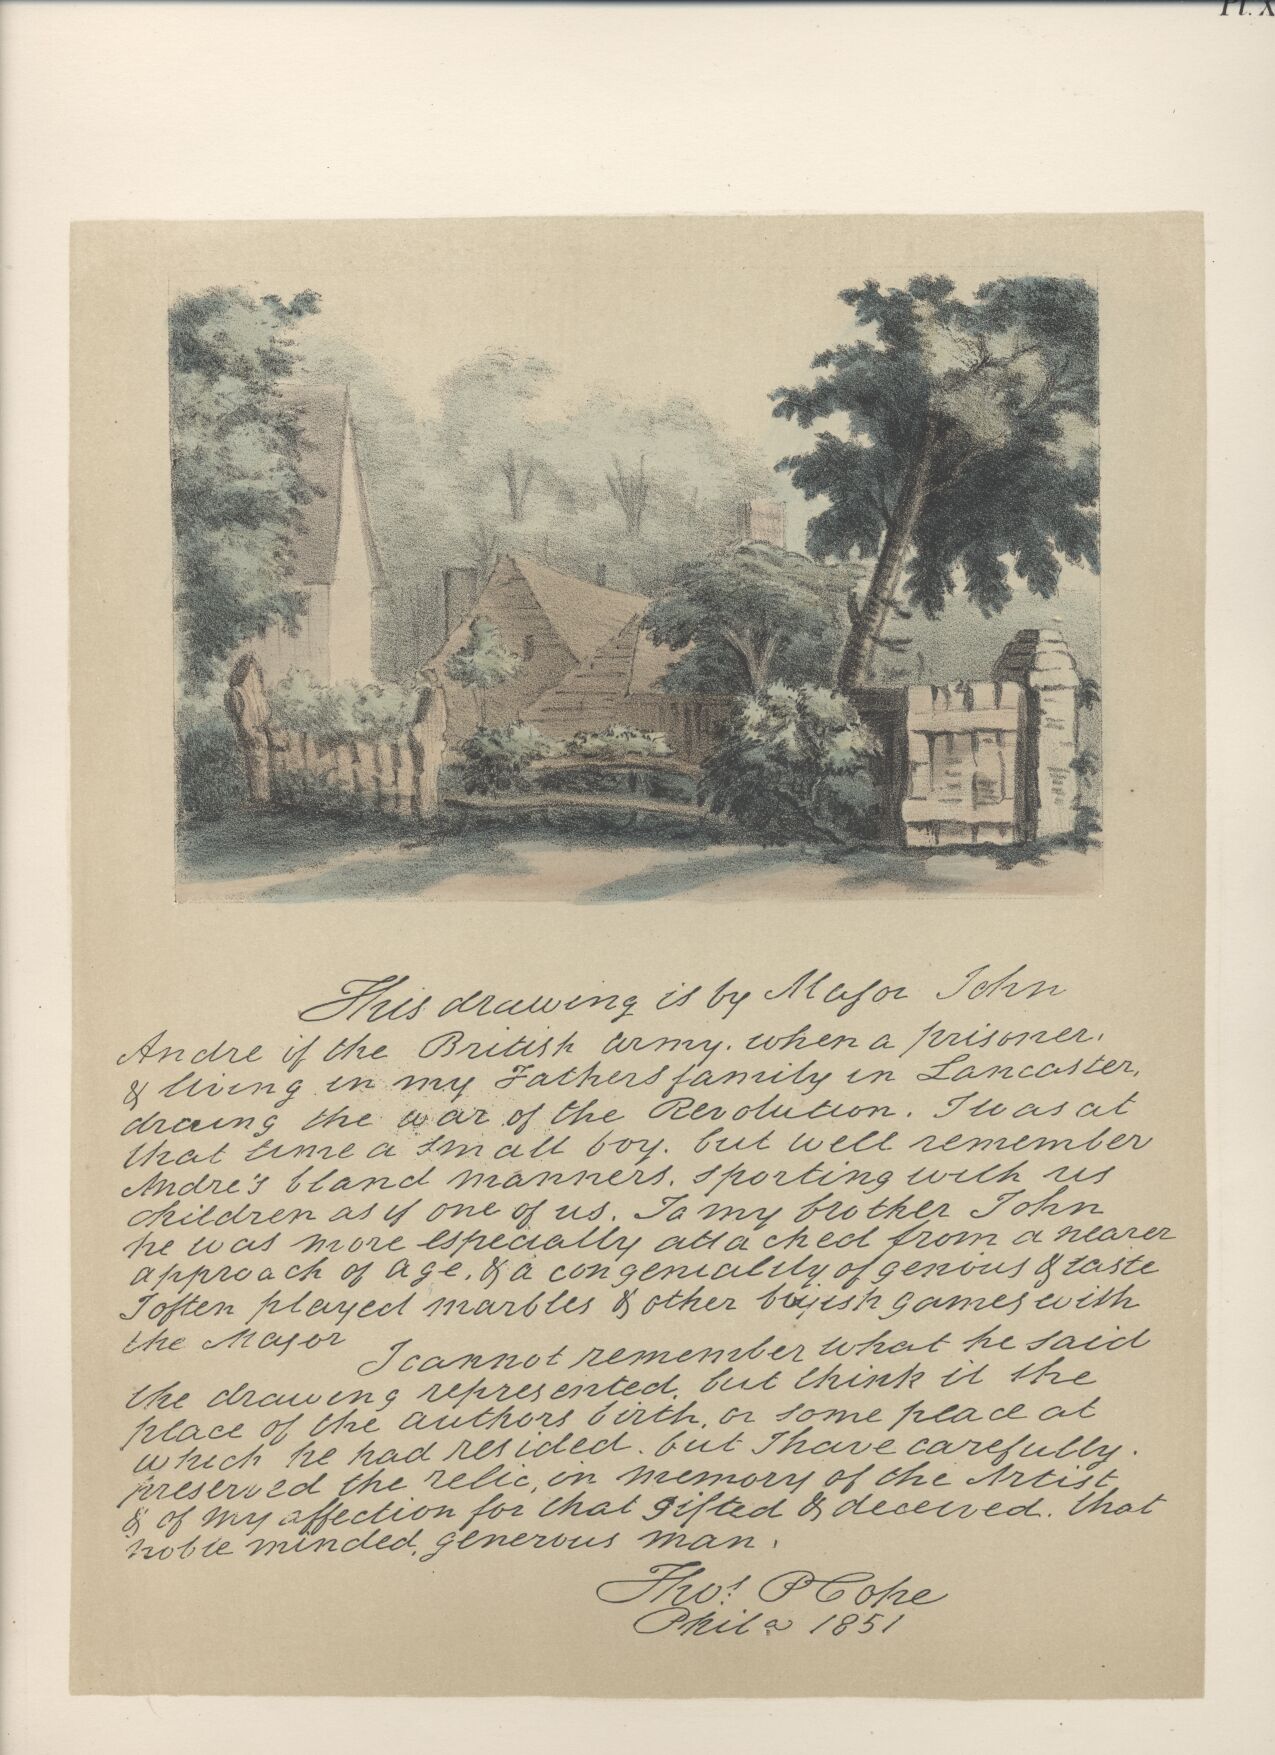 Pl. X
This drawing is by Major John
Andre of the British army. when a prisoner.
& living in my Fathers family in Lancaster,
during the war of the Revolution. I was at
that time a small boy. but well remember
Andre's bland manners. sporting with us
children as if one of us. To my brother John
he was more especially attached from a nearer
approach of age. & a congeniality of genious & taste
I often played marbles & other boyish games with
the Major
I cannot remember what he said
the drawing represented. but think it the
place of the authors birth, or some place at
which he had resided. but I have carefully.
preserved the relic, in memory of the Artist
& of my affection for that gifted & deceived. that
noble minded, generous man.
Thos. P Cope
Phila 1851